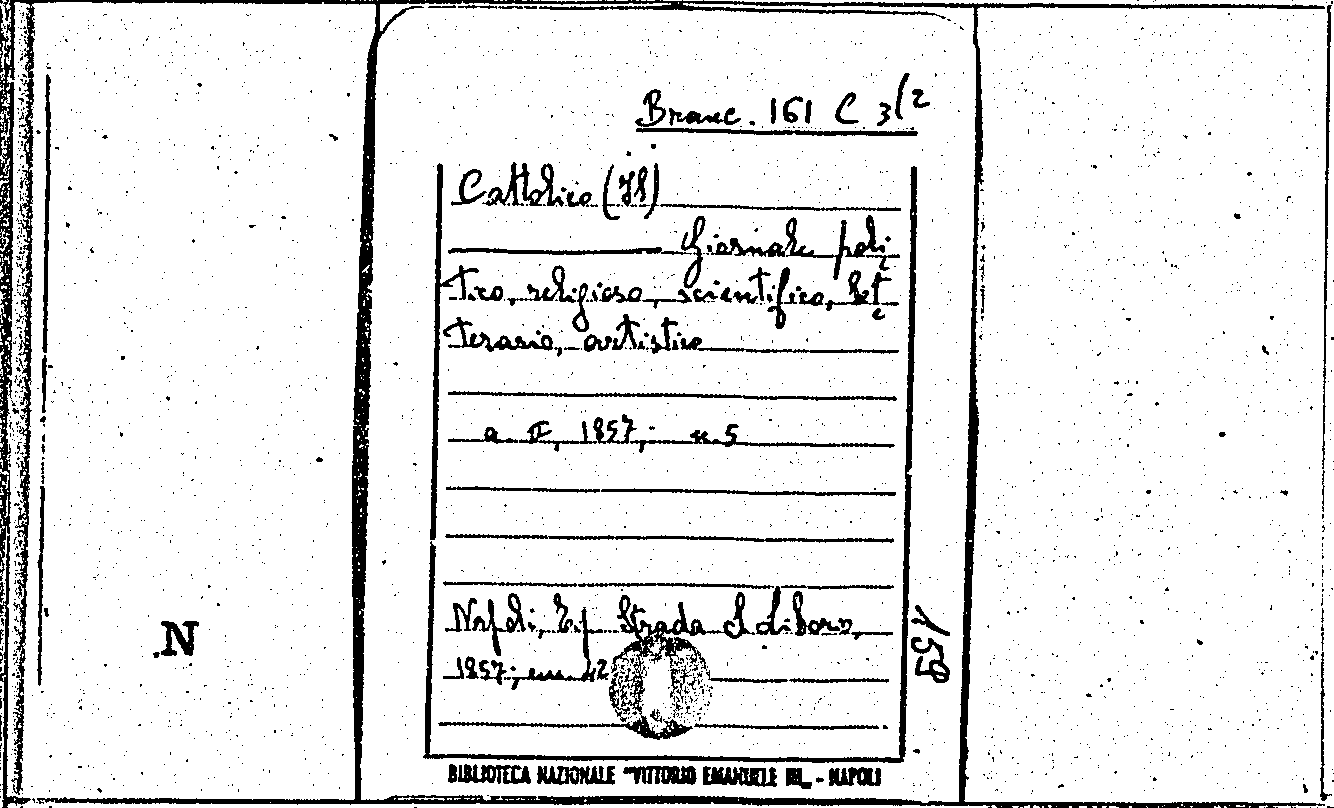 Branc. 161 C 3(2
Cattolico (Il)
Giornale poli
tico, religioso, scientifico, let
terario, artistico
a. II, 1857; n. 5
Napoli, Tip. Strada S. Liborio,
1857; cm. 42
N
159
BIBLIOTECA NAZIONALE "VITTORIO EMANUELE III„ - NAPOLI